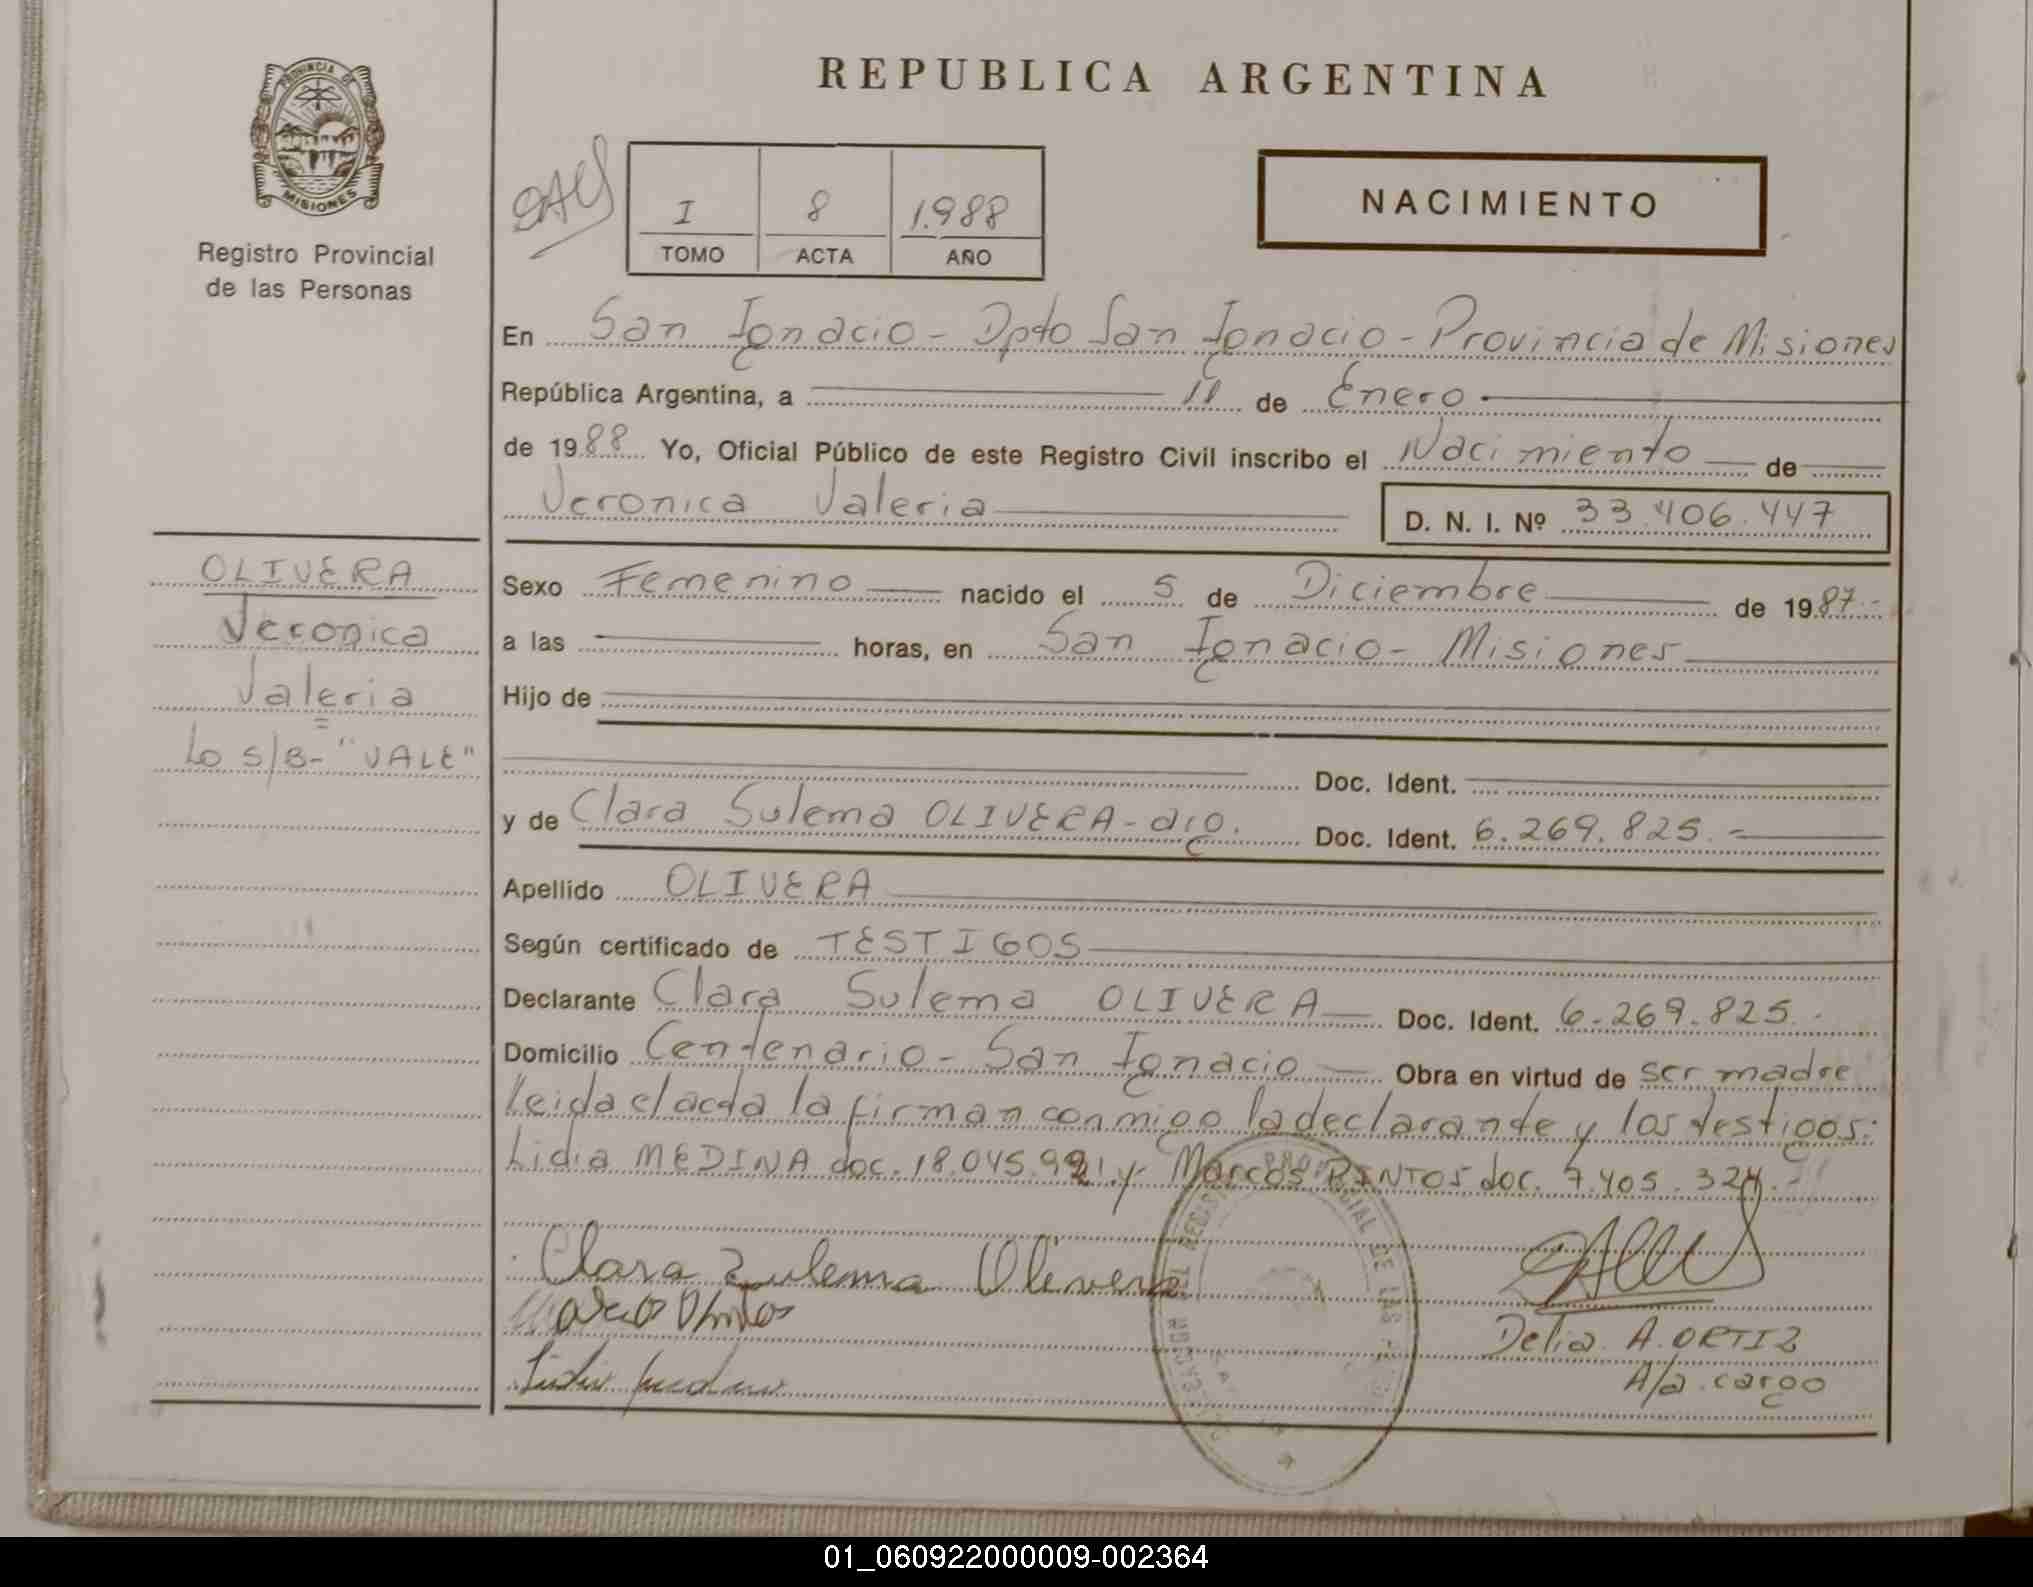 REPUBLICA ARGENTINA
PROVINCIA DE
MISIONES
Registro Provincial
de las Personas
I 8 1.988
TOMO ACTA AÑO
NACIMIENTO
En San Ignacio - Dpto San Ignacio - Provincia de Misiones
República Argentina, a 11 de Enero
de 1988 Yo, Oficial Público de este Registro Civil inscribo el Nacimiento de
Veronica Valeria D. N. I. Nº 33.406.447
OLIVERA
Veronica
Valeria
Lo S/B- "VALE"
Sexo Femenino nacido el 5 de Diciembre de 1987.-
a las horas, en San Ignacio - Misiones
Hijo de
Doc. Ident.
y de Clara Sulema OLIVERA - arg. Doc. Ident. 6.269.825.-
Apellido OLIVERA
Según certificado de TESTIGOS
Declarante Clara Sulema OLIVERA Doc. Ident. 6.269.825.-
Domicilio Centenario - San Ignacio Obra en virtud de ser madre
Leida el acta la firman conmigo la declarante y los testigos:
Lidia MEDINA doc. 18.045.991 y Marcos PINTOS doc. 7.405.324.-
Clara Zulema Olivera
Delia A. ORTIZ
A/a. cargo
01_060922000009-002364